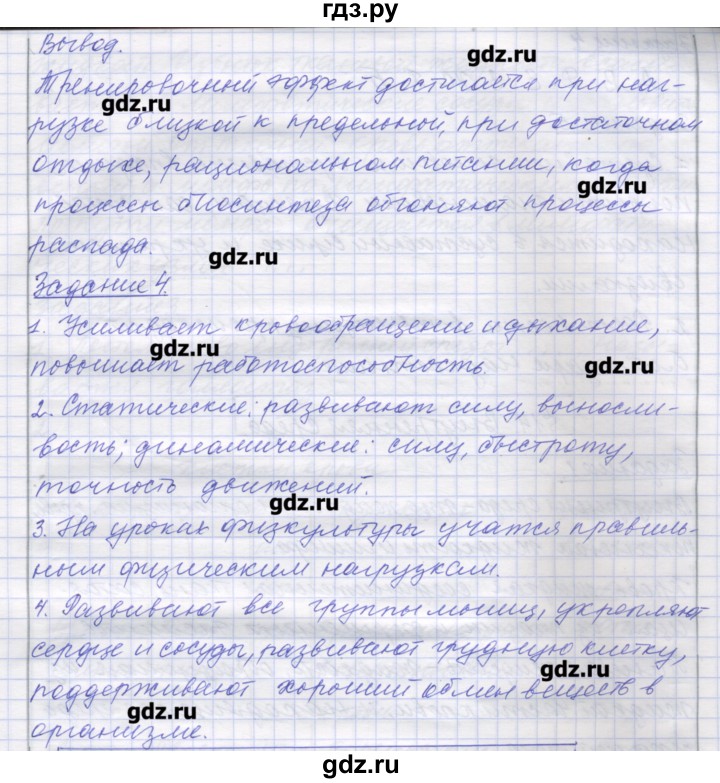 гдз.ру
Вывод.
gdz.ru
Тренировочный эффект достигается при наг-
gdz.ru
рузке близкой к предельной, при достаточном
отдыхе, рациональном питании, когда
gdz.ru
процессы биосинтеза обгоняют процессы
распада.
gdz.ru
Задание 4.
1. Усиливает кровообращение и дыхание,
gdz.ru
повышает работоспособность.
gdz.ru
2. Статические: развивают силу, выносли-
вость; динамические: силу, быстроту,
точность движений.
gdz.ru
3. На уроках физкультуры учатся правиль-
ным физическим нагрузкам.
gdz.ru
4. Развивают все группы мышц, укрепляют
сердце и сосуды, развивают грудную клетку,
gdz.ru
поддерживают хороший обмен веществ в
gdz.ru
организме.
gdz.ru